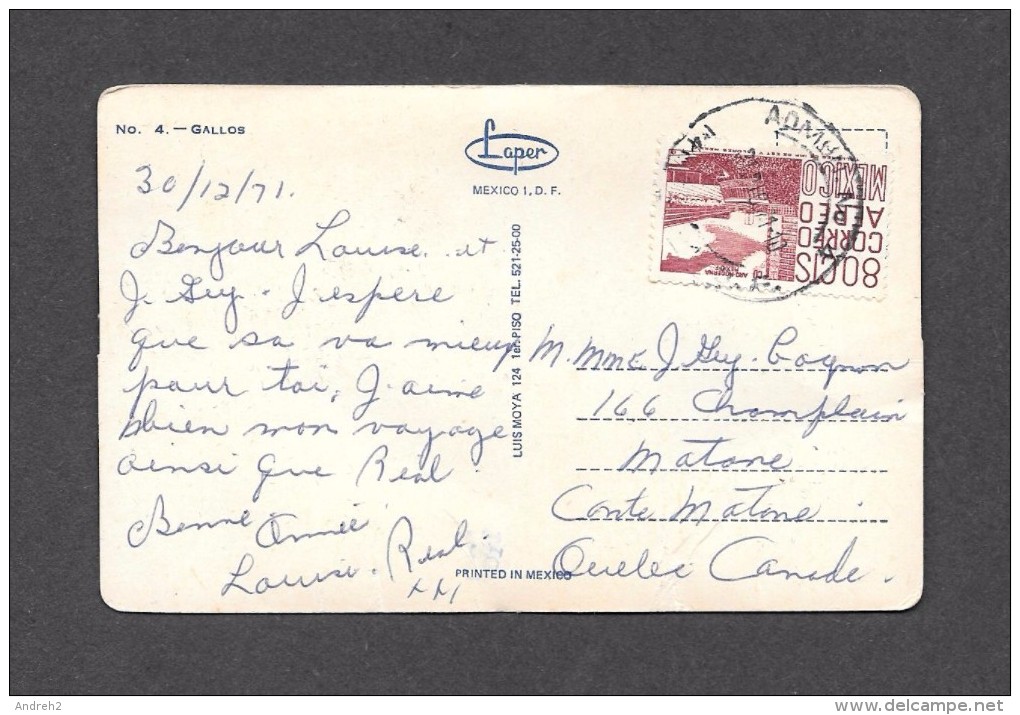 No. 4. — GALLOS
Laper
MEXICO 1, D. F.
30/12/71.
Bonjour Louise. et
J. Guy. J espere
que sa va mieux
pour toi, J aime
bien mon voyage
ainsi que Réal.
Bonne Année
Louise. Réal.
xxx
LUIS MOYA 124 1er. PISO TEL. 521-25-00
PRINTED IN MEXICO
80 CTS
CORREO
AEREO
MEXICO
ARQ MODERNA
M. Mme J Guy. Gagnon
166 Champlain
Matane
Conte Matane
Quebec Canada.
Andreh2
delcampe.net